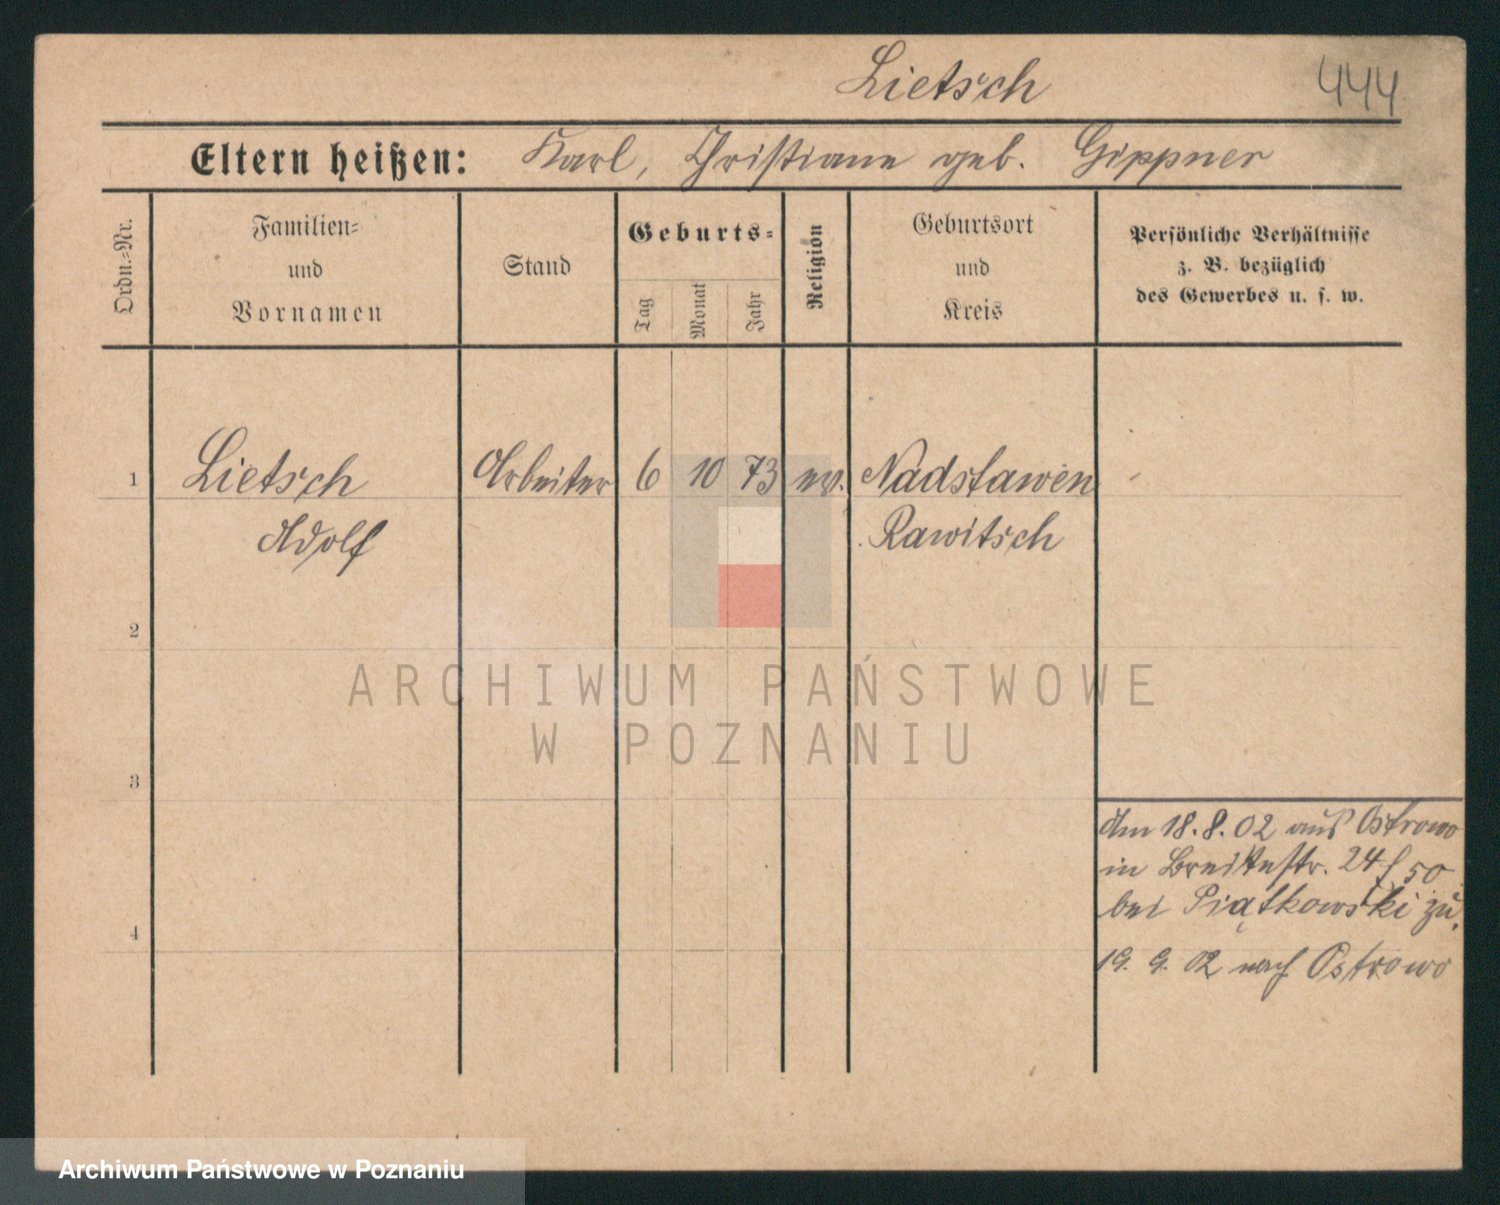 Lietsch
444
Eltern heißen: Karl, Christiane geb. Gippner
Ordn.=Nr.
Familien=
und
Vornamen
Stand
Geburts=
Tag
Monat
Jahr
Religion
Geburtsort
und
Kreis
Persönliche Verhältnisse
z. B. bezüglich
des Gewerbes u. s. w.
1 Lietsch Arbeiter 6 10 73 ev. Nadstawen
Adolf Rawitsch
2
3
4
Am 18.8.02 aus Ostrowo
in Breitestr. 24
bei Piątkowski zu.
19. 9. 02 nach Ostrowo
ARCHIWUM PAŃSTWOWE
W POZNANIU
Archiwum Państwowe w Poznaniu